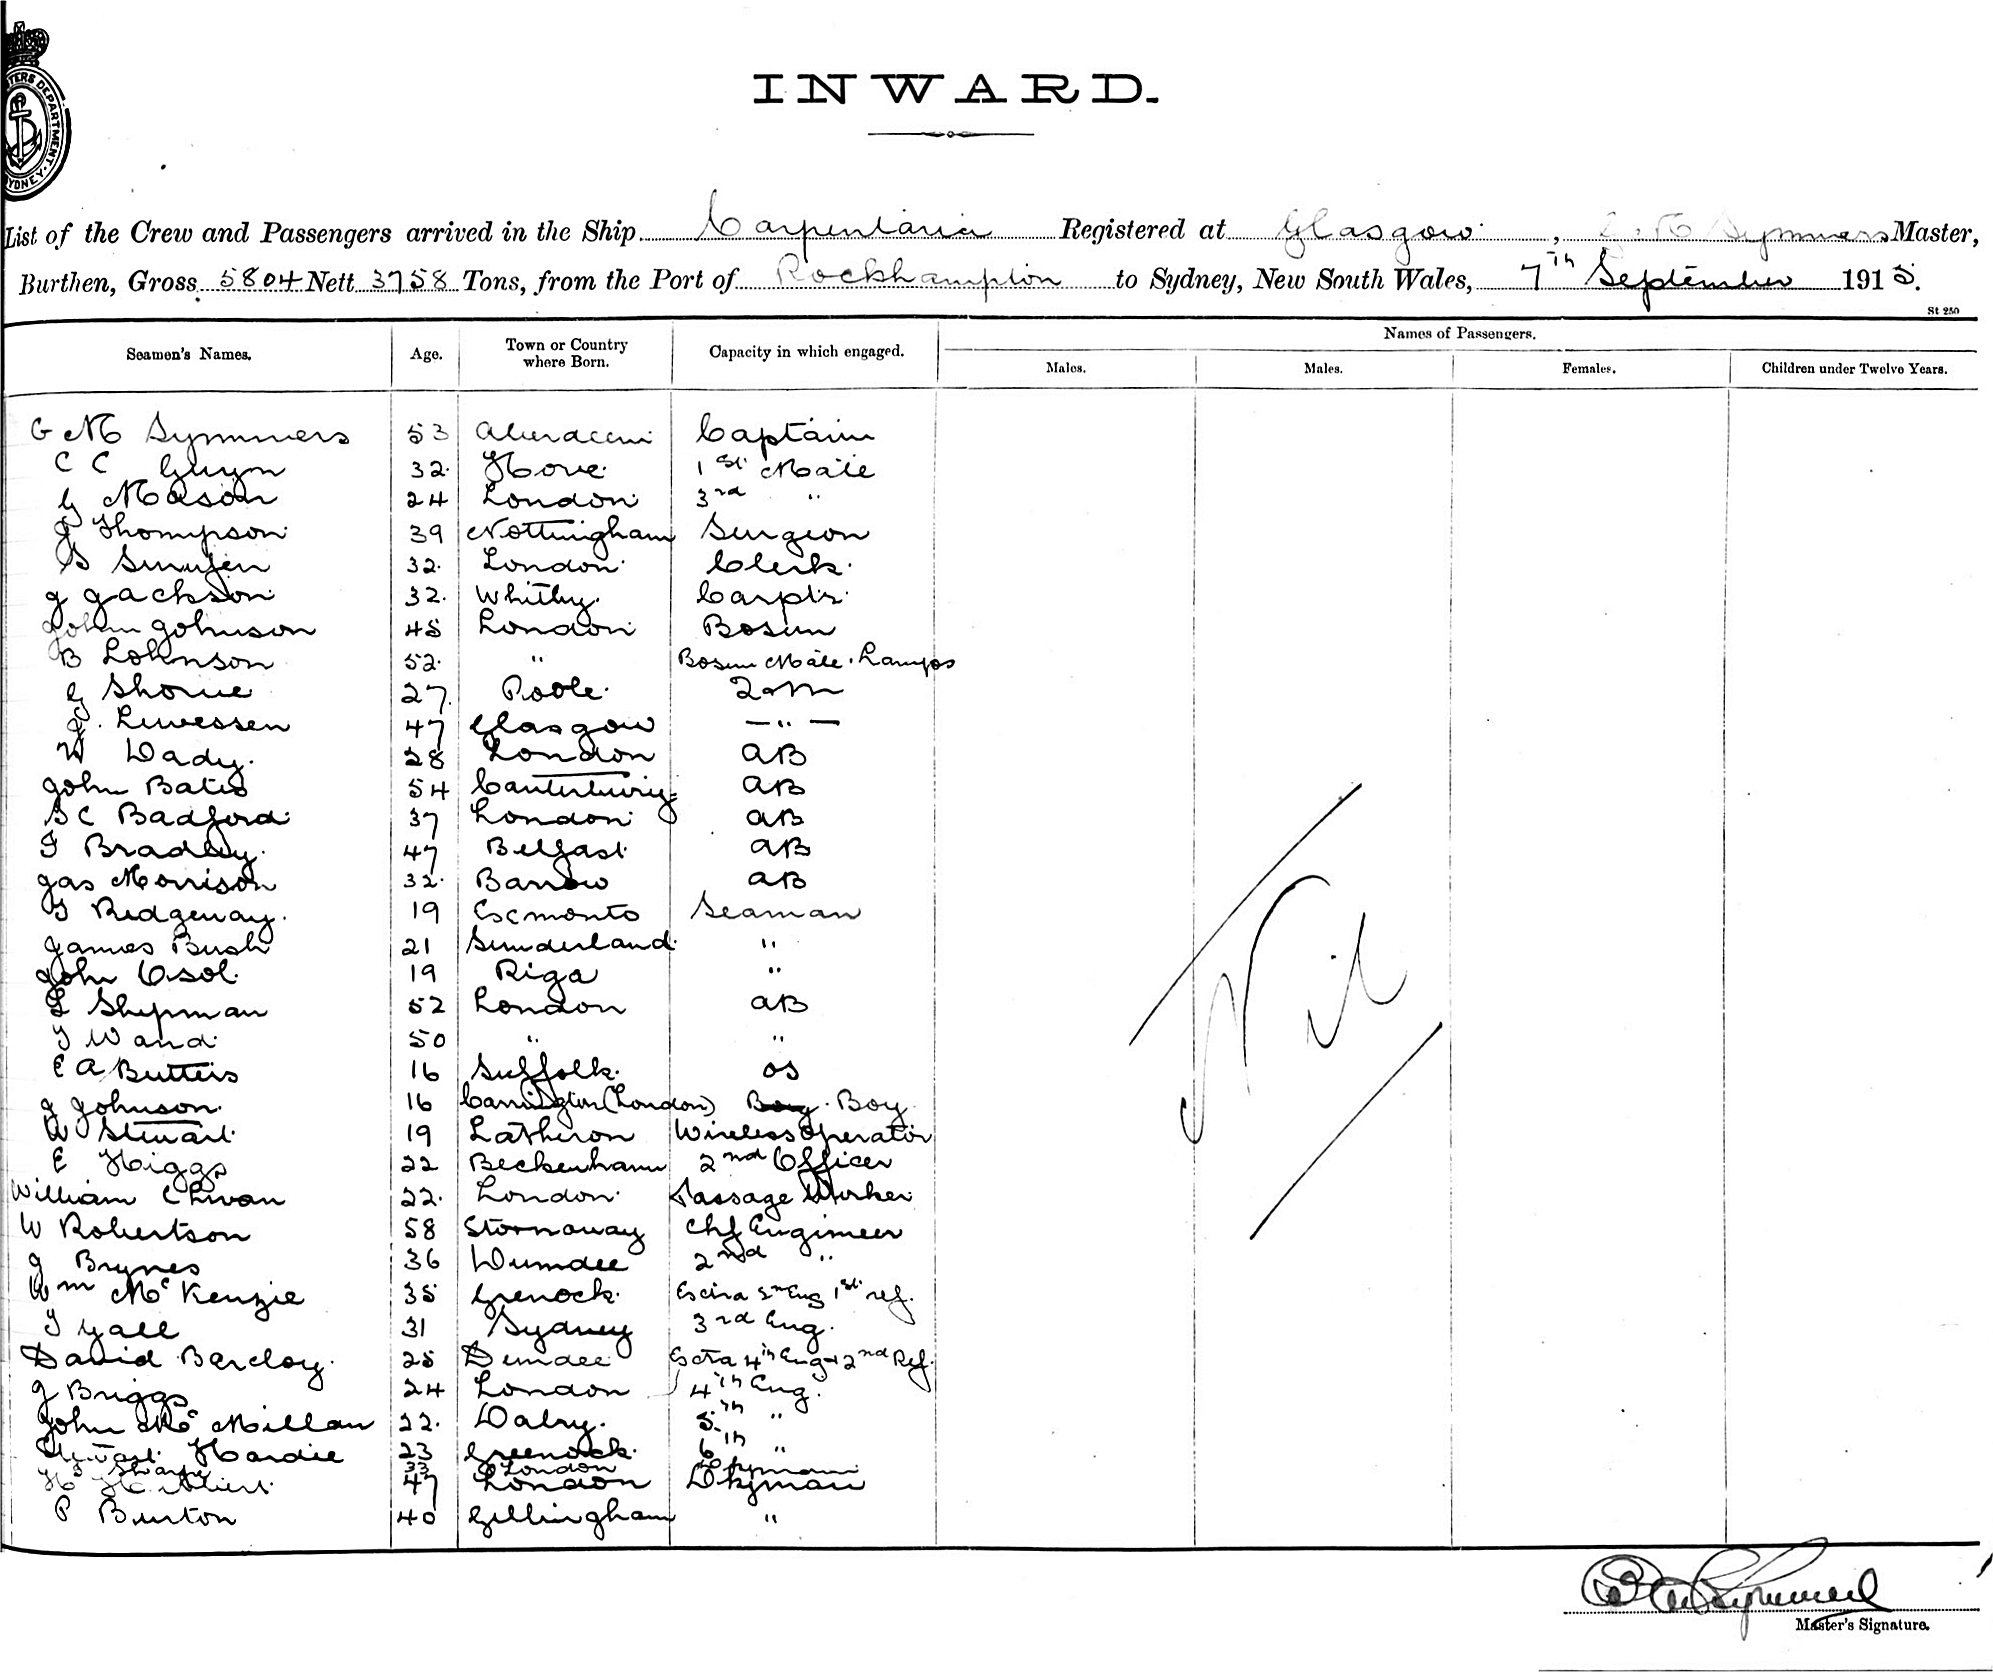 INWARD.
List of the Crew and Passengers arrived in the Ship Carpentaria Registered at Glasgow, G. M Symmers Master,
Burthen, Gross 5804 Nett 3758 Tons, from the Port of Rockhampton to Sydney, New South Wales, 7th September 1915.
St 250
Seamen's Names. Age. Town or Country where Born. Capacity in which engaged. Names of Passengers.
Males. Males. Females. Children under Twelve Years.
G M Symmers 53 Aberdeen Captain
C C Gwyn 32 Hove 1st Mate
G Mason 24 London 3rd "
J Thompson 39 Nottingham Surgeon
S 32 London Clerk
J Jackson 32 Whitby Carptr
John Johnson 45 London Bosun
B Lohnson 52 " Bosun Mate. Lamps
G Shorne 27 Poole 2 M
J. 47 Glasgow — " —
W Dady 28 London AB
John Bates 54 Canterbury AB
S C Badford 37 London AB
F Bradley 47 Belfast AB
Jas Morrison 32 Barrow AB
T Ridgeway 19 Seaman
James Bush 21 Sunderland "
John Osol 19 Riga "
L Shipman 52 London AB
T Wand 50 " "
E A Butters 16 Suffolk OS
J Johnson 16 (London) Boy Boy
W Stewart 19 Latheron Wireless Operator
E Higgs 22 Beckenham 2nd Officer
William C 22 London Passage Worker
W Robertson 58 Stornoway Chf Engineer
J Brynes 36 Dundee 2nd "
Wm McKenzie 35 Grenock Extra 2nd Eng 1st ref.
T Yall 31 Sydney 3rd Eng.
David Barclay 25 Dundee Extra 4th Eng + 2nd Ref.
J Briggs 24 London 4th Eng.
John McMillan 22 Dalry 5th "
Hardie 23 Greenock 6th "
T Sharpe 33 London Dkyman
H Herbert 47 London Dkyman
P Burton 40 Gillingham "
Nil
Master's Signature.